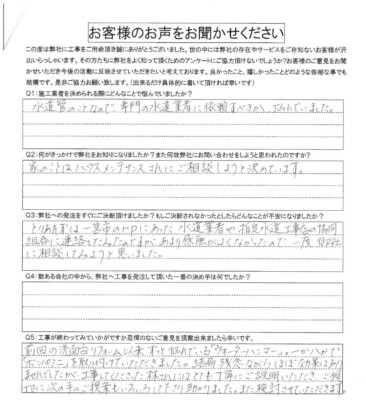 お客様のお声をお聞かせください
この度は弊社に工事をご用命頂き誠にありがとうございました。世の中には弊社の存在やサービスをご存知ないお客様が沢
山いらっしゃいます。その方たちに弊社をよく知って頂くためのアンケートにご協力頂けないでしょうか?お客様のご意見をお聞
かせいただき今後の活動に反映させていただきたいと考えております。良かったこと、嬉しかったことどのような些細な事でも
結構です。是非ご協力お願い致します。(出来るだけ具体的に書いて頂ければ幸いです)
Q1:施工業者を決められる際にどんなことで悩んでいましたか?
水道管のことなので、専門の水道業者に依頼すべきか、悩んでいました。
Q2:何がきっかけで弊社をお知りになりましたか?また何故弊社にお問い合わせをしようと思われたのですか?
家のことはハウスメンテナンスさんにご相談しようと決めています。
Q3:弊社への発注をすぐにご決断頂けましたか?もしご決断されなかったとしたらどんなことが不安になりましたか?
とりあえずは一宮市のHPにあった水道業者や指定水道工事店の協同
組合に連絡したみたのですが、あまり感触がよくなかったので一度御社
に相談してみようと思いました。
Q4:数ある会社の中から、弊社へ工事を発注して頂いた一番の決め手は何でしたか?
Q5:工事が終わってみていかがですか忌憚のないご意見を頂戴出来ましたら幸いです。
前回の洗面台リフォーム以来ずっと悩んでいる"ウォーターハンマー"
を取り付けていただきました。結局、残念ながらほぼ効果はあり
ませんでしたが、工事してくださった林さんにはとても丁寧にご説明いただき、ご親
切に次の手のご提案もいろいろして下さり助かりました。また検討させていただきます。